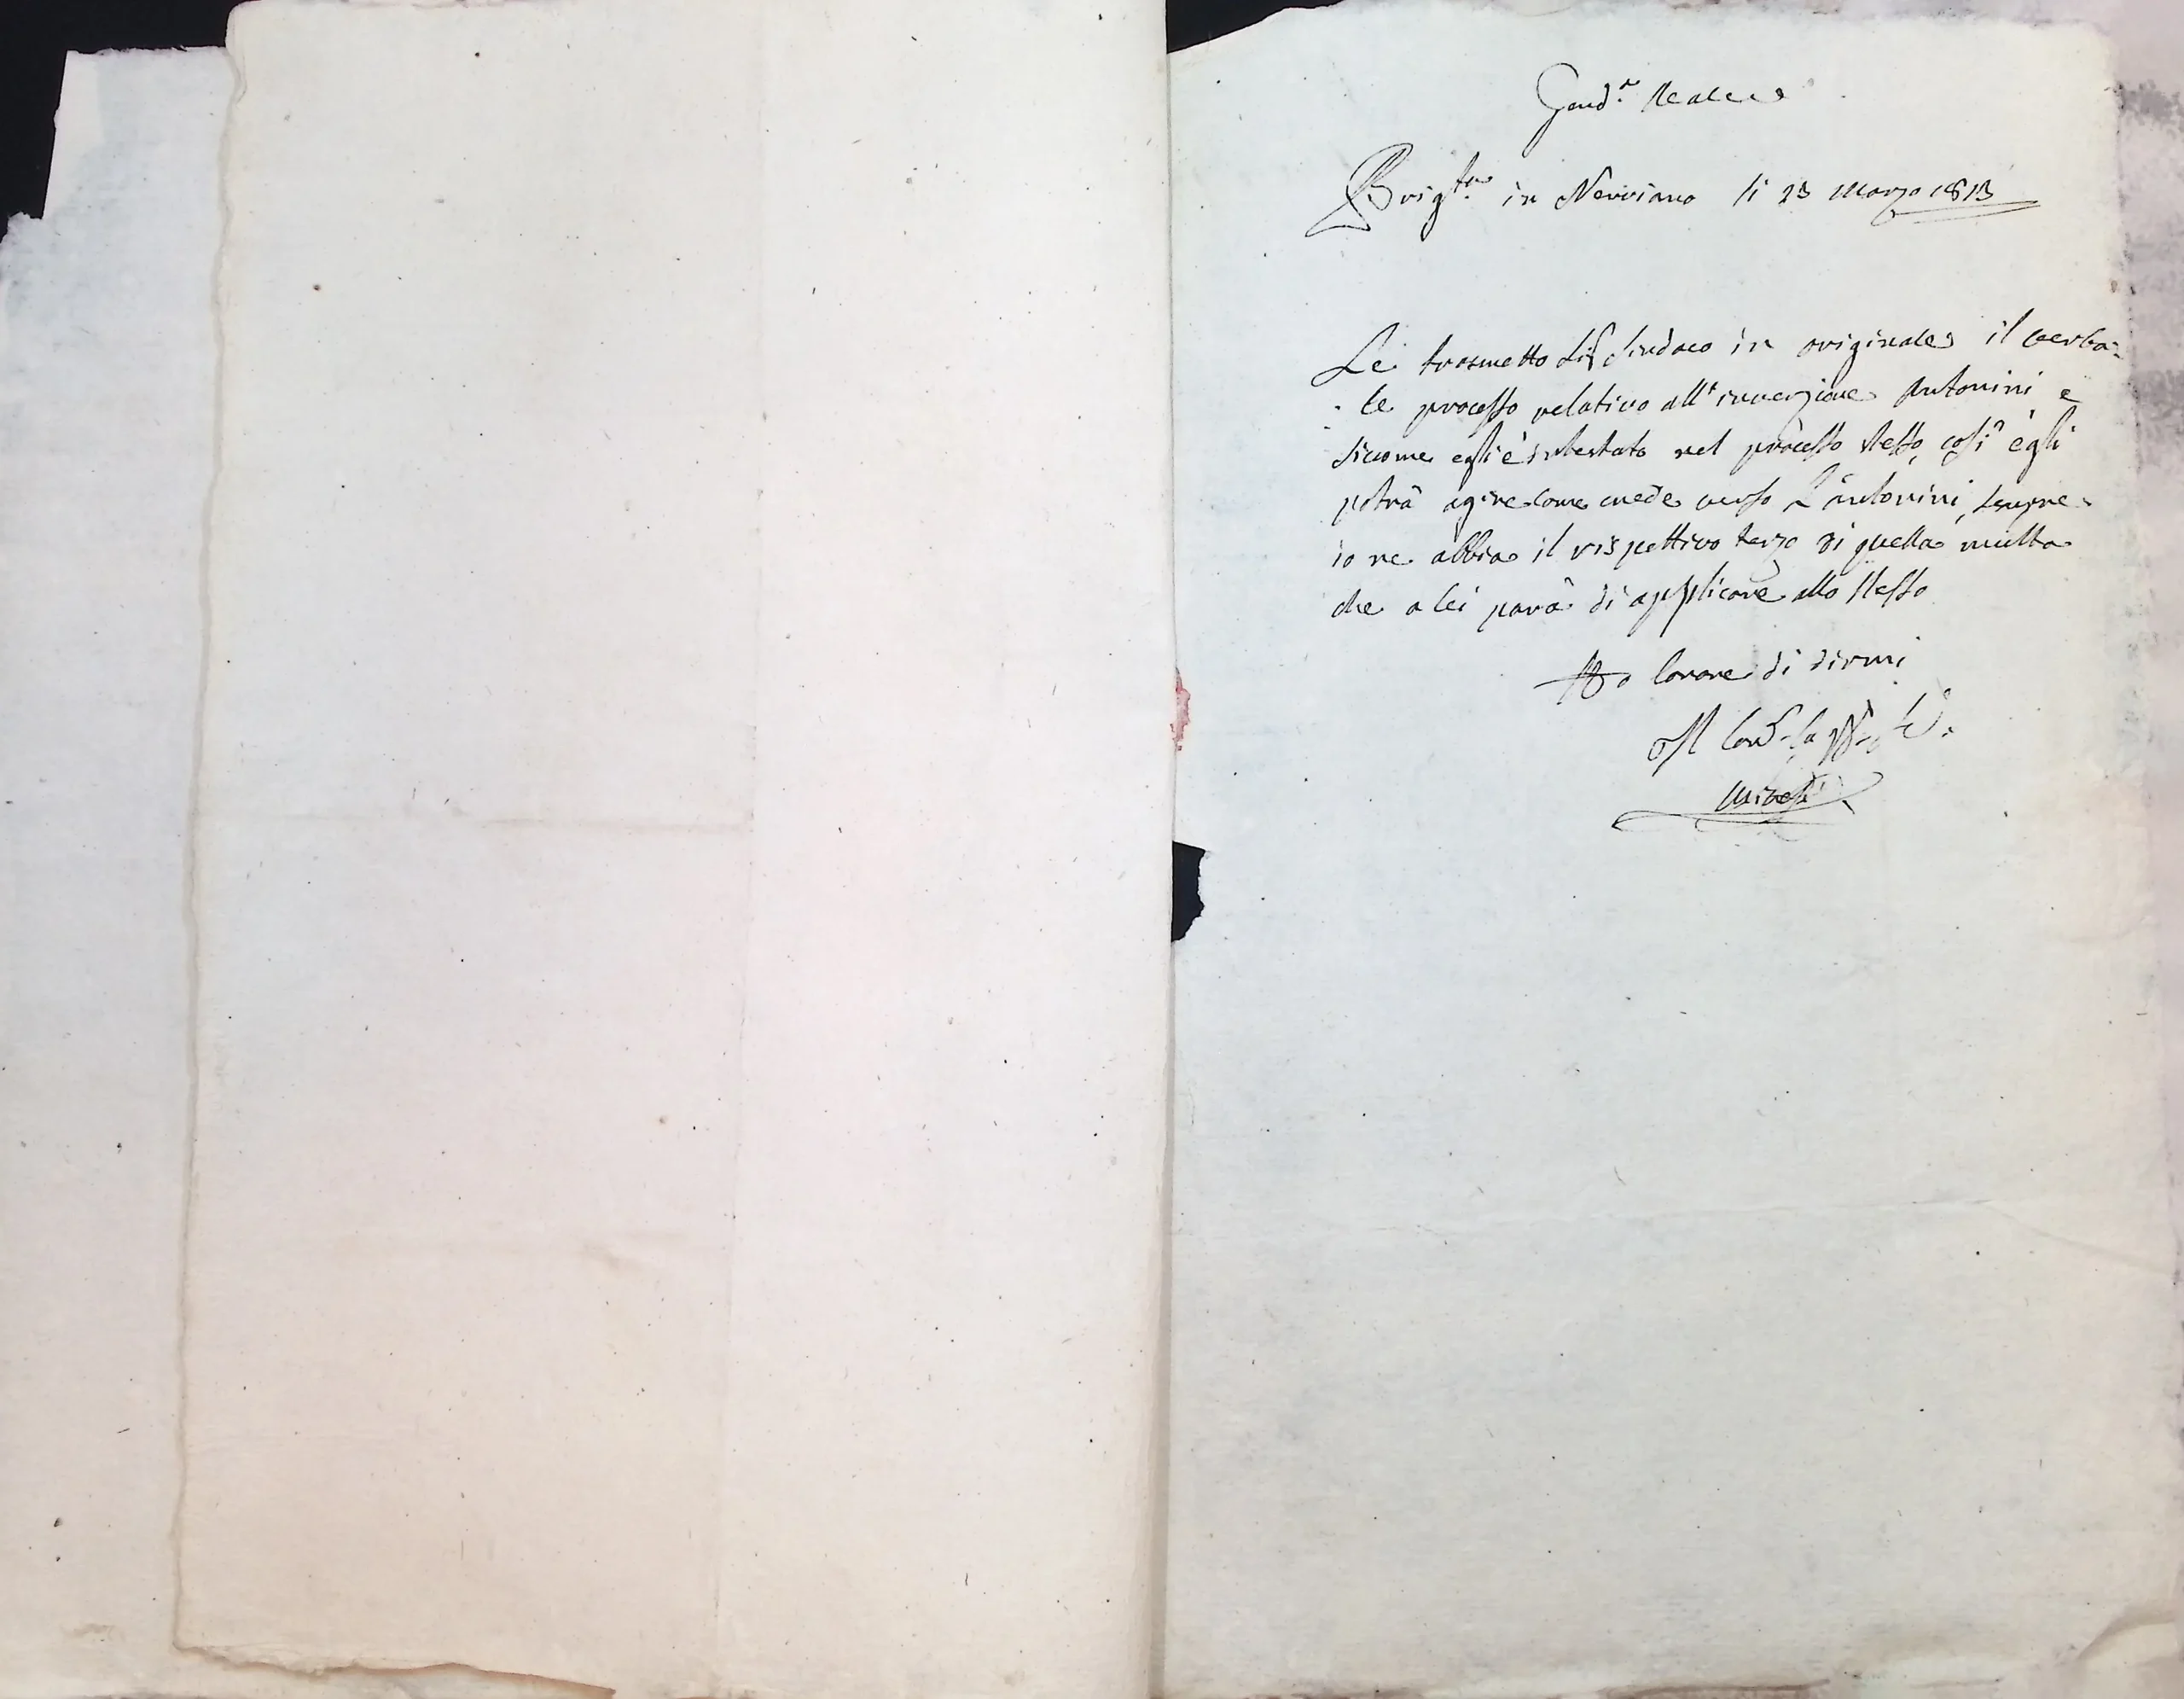 Gend.a Reale
Brig.ta in Nerviano li 23 Marzo 1813
Le trasmetto Sig Sindaco in originale il verba-
le processo relativo all'invenzione Antonini e
siccome egli è intestato nel processo stesso, così egli
potrà agire come crede verso L'antonini, sempre
io ne abbia il rispettivo terzo di quella multa
che a lei parà di applicare allo stesso
Ho l'onore di dirmi
Il